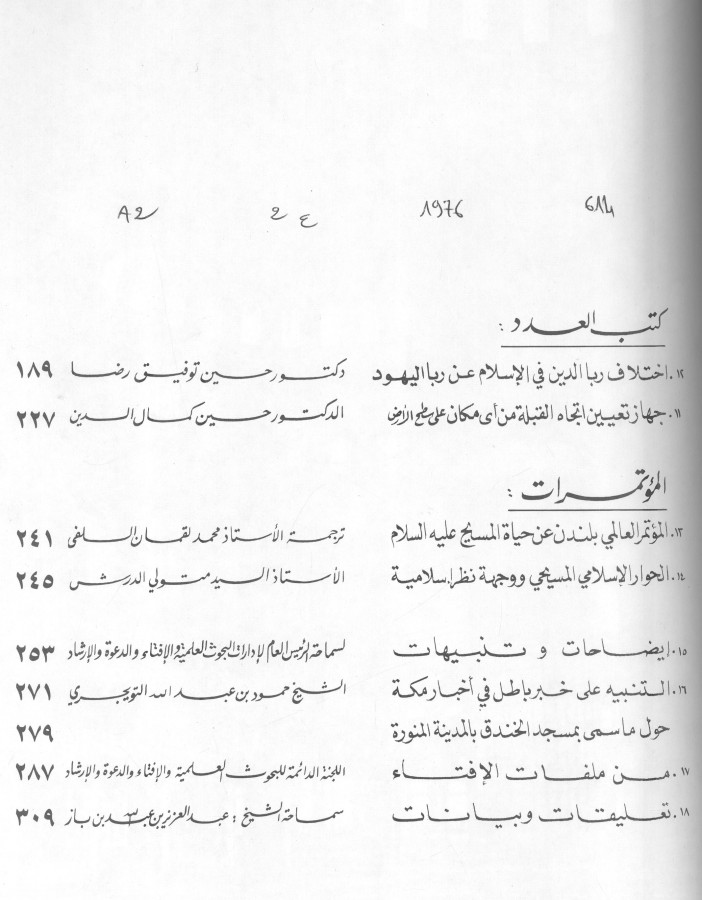 A2 2 ع 1976 614
كتب العدد :
١٢. اختلاف ربا الدين في الإسلام عن ربا اليهود دكتور حسين توفيق رضا ١٨٩
١١. جهاز تعيين اتجاه القبلة من أى مكان على سطح الأرض الدكتور حسين كمال الدين ٢٢٧
المؤتمرات :
١٣. المؤتمر العالمي بلندن عن حياة المسيح عليه السلام ترجمة الأستاذ محمد لقمان السلفى ٢٤١
١٤. الحوار الإسلامي المسيحي ووجهة نظر إسلامية الأستاذ السيد متولي الدرش ٢٤٥
١٥. إيضاحات و تنبيهات لسماحة الرئيس العام لإدارات البحوث العلمية والإفتاء والدعوة والإرشاد ٢٥٣
١٦. التنبيه على خبر باطل في أخبار مكة الشيخ حمود بن عبد الله التويجري ٢٧١
حول ما سمى بمسجد الخندق بالمدينة المنورة ٢٧٩
١٧. من ملفات الإفتاء اللجنة الدائمة للبحوث العلمية والإفتاء والدعوة والإرشاد ٢٨٧
١٨. تعليقات وبيانات سماحة الشيخ : عبد العزيز بن عبد الله بن باز ٣٠٩